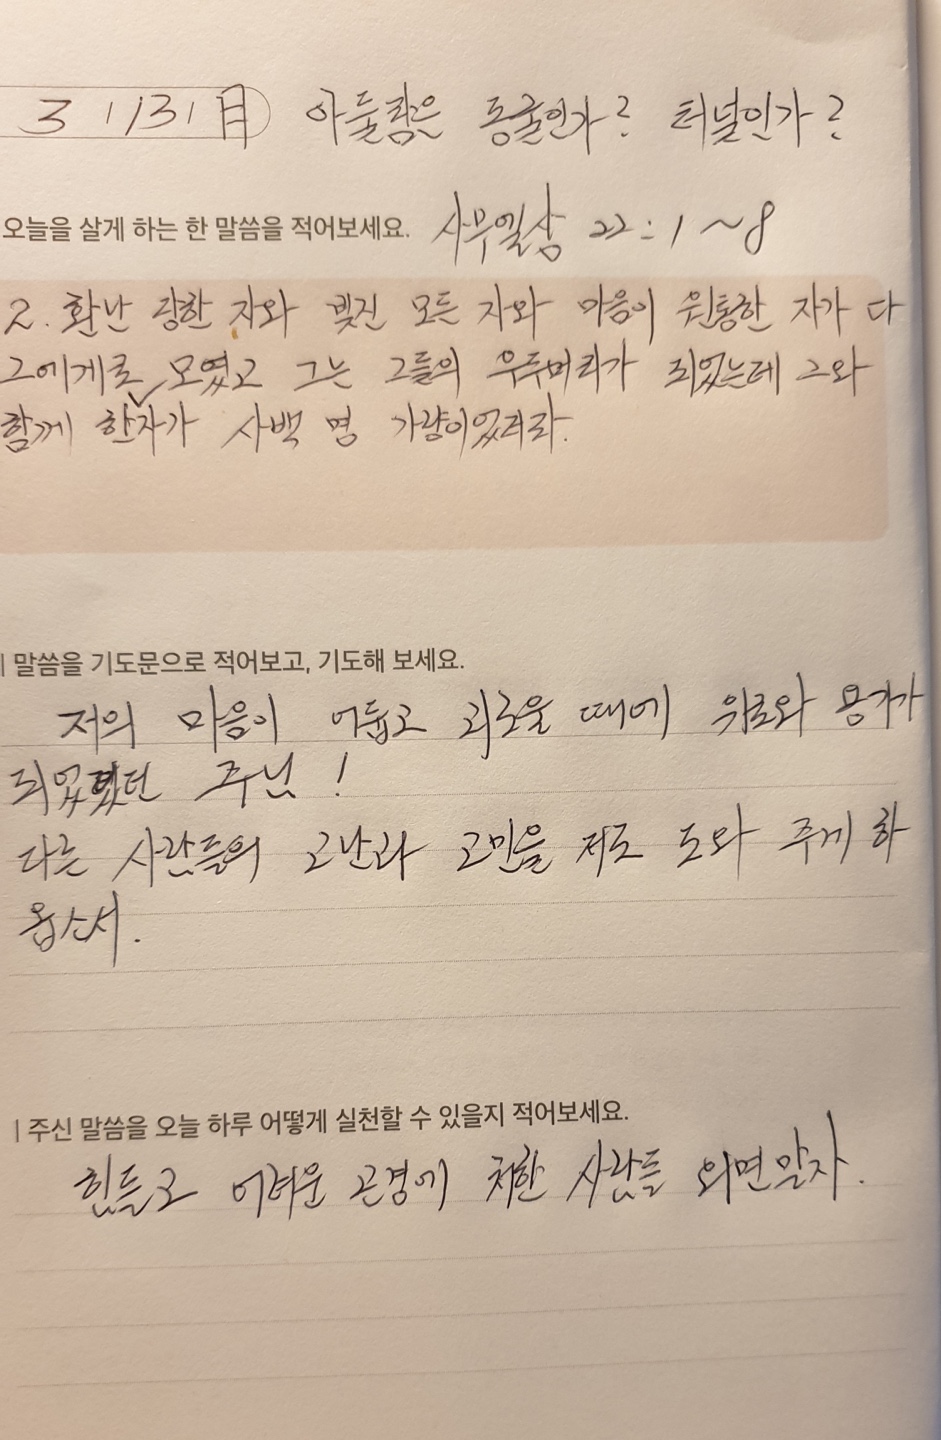 3 1/31 日 아둘람은 동굴인가? 터널인가?
오늘을 살게 하는 한 말씀을 적어보세요. 사무엘상 22:1~8
2. 환난 당한 자와 빚진 모든 자와 마음이 원통한 자가 다
그에게로 모였고 그는 그들의 우두머리가 되었는데 그와
함께 한 자가 사백 명 가량이었더라.
| 말씀을 기도문으로 적어보고, 기도해 보세요.
저의 마음이 어둡고 괴로울 때에 위로와 용기가
되었던 주님!
다른 사람들의 고난과 고민을 저도 도와 주게 하
옵소서.
| 주신 말씀을 오늘 하루 어떻게 실천할 수 있을지 적어보세요.
힘들고 어려운 곤경에 처한 사람들 외면말자.